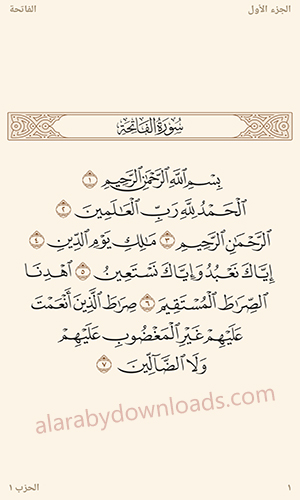 الجزء الأول
الفاتحة
سُورَةُ الفَاتِحَةِ
بِسْمِ اللَّهِ الرَّحْمَٰنِ الرَّحِيمِ ١
الْحَمْدُ لِلَّهِ رَبِّ الْعَالَمِينَ ٢
الرَّحْمَٰنِ الرَّحِيمِ ٣ مَالِكِ يَوْمِ الدِّينِ ٤
إِيَّاكَ نَعْبُدُ وَإِيَّاكَ نَسْتَعِينُ ٥ اهْدِنَا
الصِّرَاطَ الْمُسْتَقِيمَ ٦ صِرَاطَ الَّذِينَ أَنْعَمْتَ
عَلَيْهِمْ غَيْرِ الْمَغْضُوبِ عَلَيْهِمْ
وَلَا الضَّالِّينَ ٧
alarabydownloads.com
١
الحزب ١